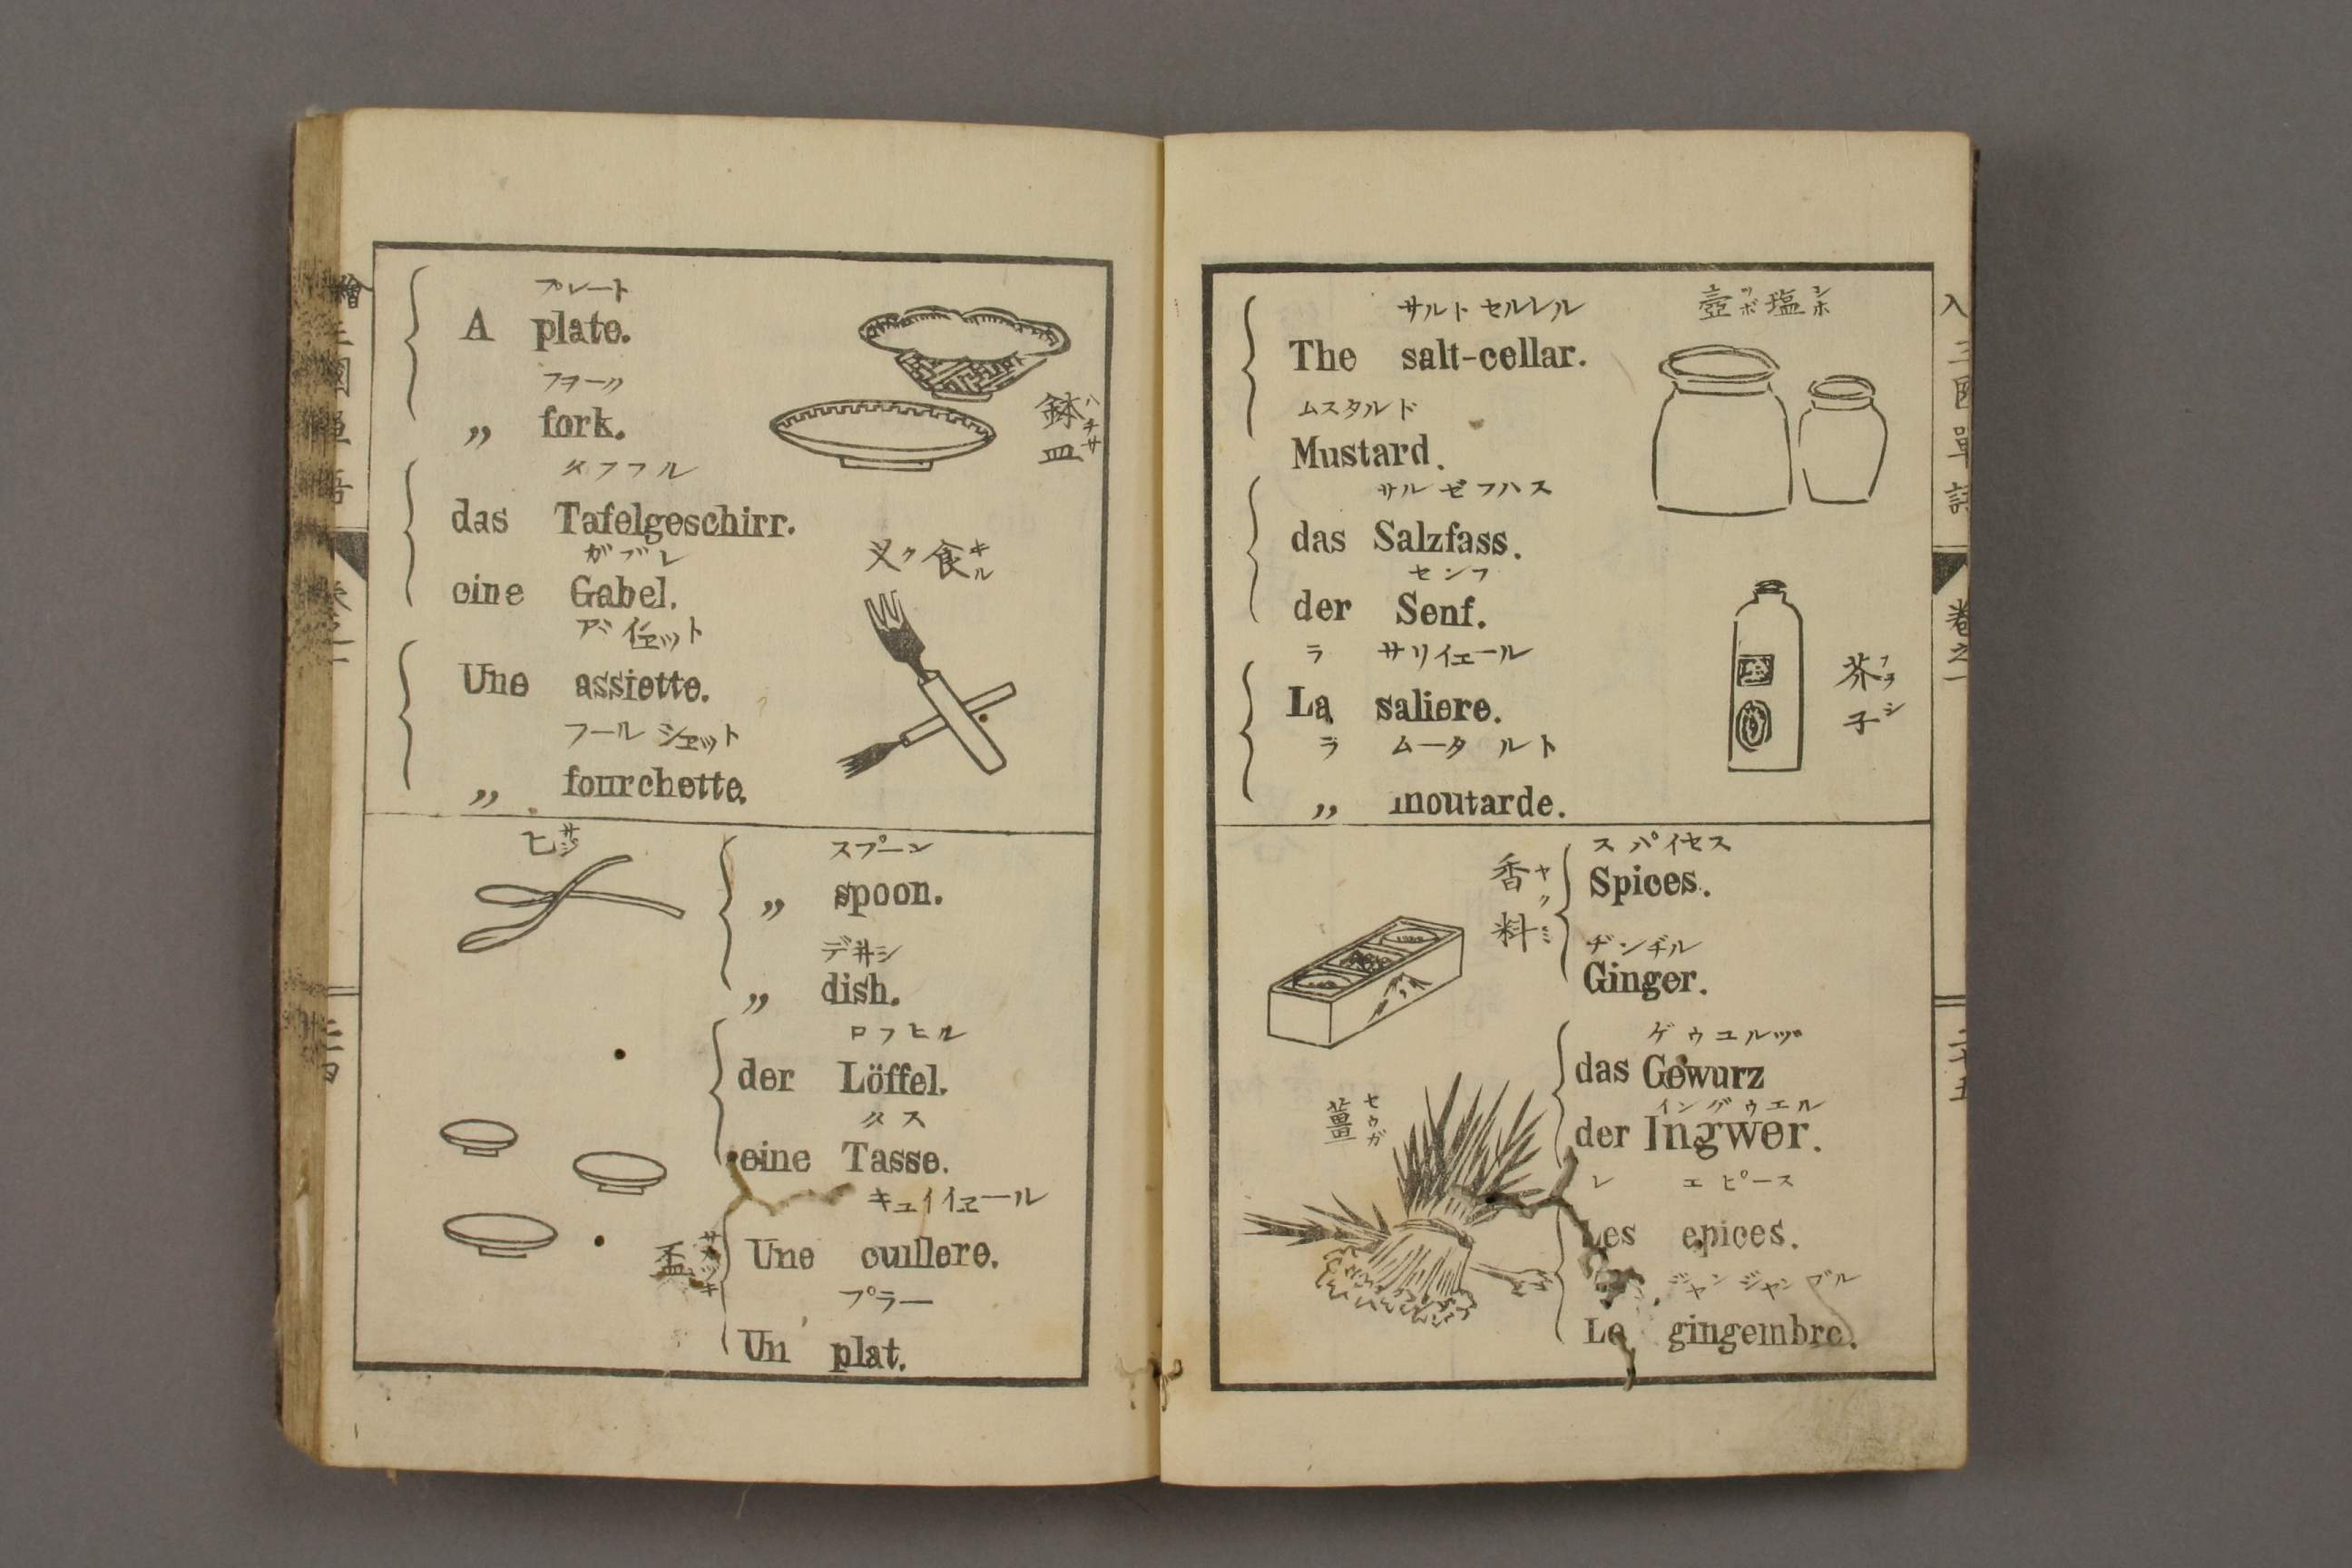 プレート
A plate.
フヲーク
„ fork.
タフフル
das Tafelgeschirr.
ガブレ
eine Gabel.
アバイヱット
Une assiette.
フールシヱット
„ fourchette.
鉢皿
ハチサ
食叉
スプーン
„ spoon.
デ井シ
„ dish.
ロフヒル
der Löffel.
タス
eine Tasse.
キュイイヱール
Une cuillere.
プラー
Un plat.
匕
サジ
盃
サカツキ
サルトセルレル
The salt-cellar.
ムスタルド
Mustard.
サルゼフハス
das Salzfass.
センフ
der Senf.
ラ サリイエール
La saliere.
ラ ムータルト
„ moutarde.
塩壺
シホツボ
芥子
スパイセス
Spices.
ヂンヂル
Ginger.
ゲウユルツ
das Gewurz
イングウエル
der Ingwer.
レ エピース
Les epices.
ジャンジャンブル
Le gingembre.
香料
ヤクミ
薑
セウガ
三国單語
卷之一
二十五